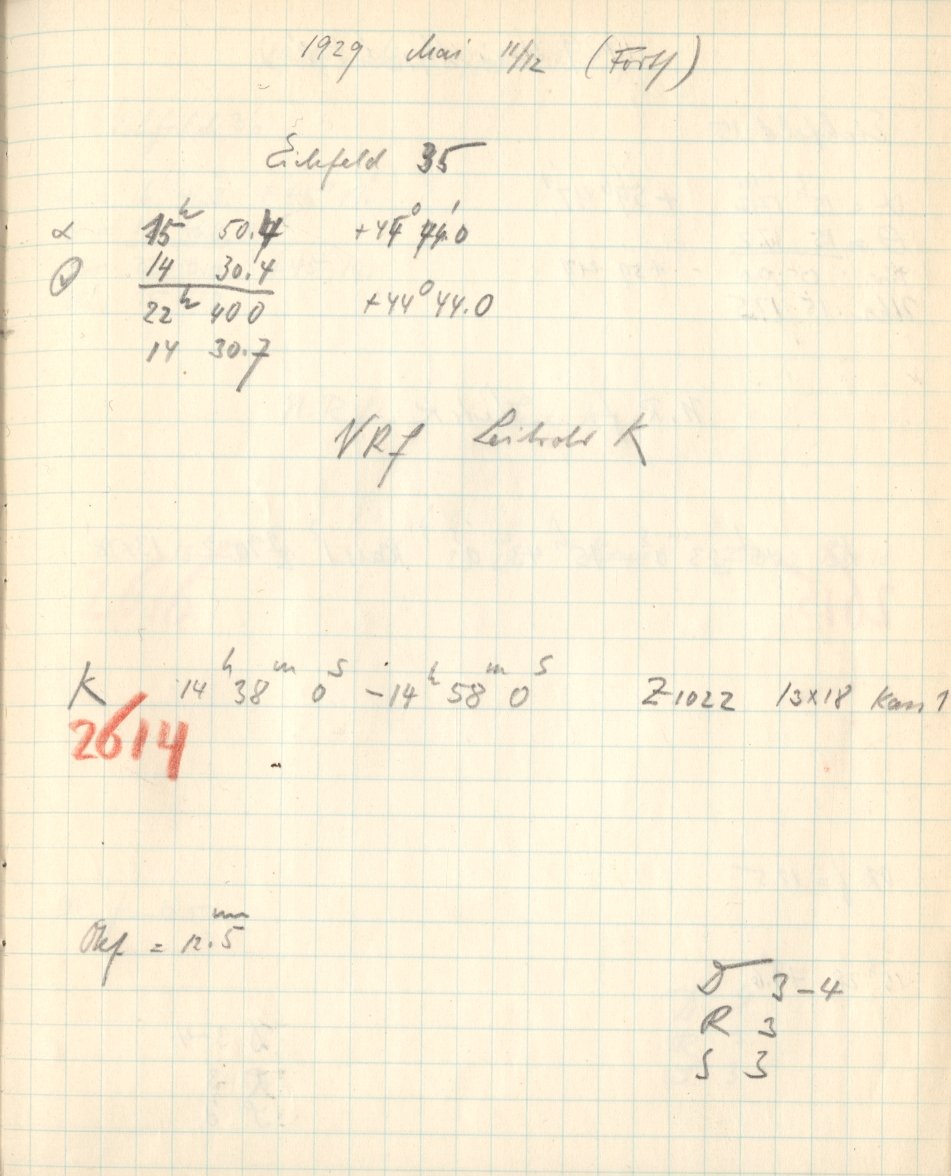 1929 Mai 11/12 (Forts)
Eichfeld 35
α 15h 50.4 +44° 44.0
14 30.4
22h 40 0 +44° 44.0
14 30.7
NRf Leitrohr K
K 14h 38m 0s – 14h 58m 0s Z 1022 13x18 Kass 1
2614
Okf = 12.5mm
D 3–4
R 3
S 3